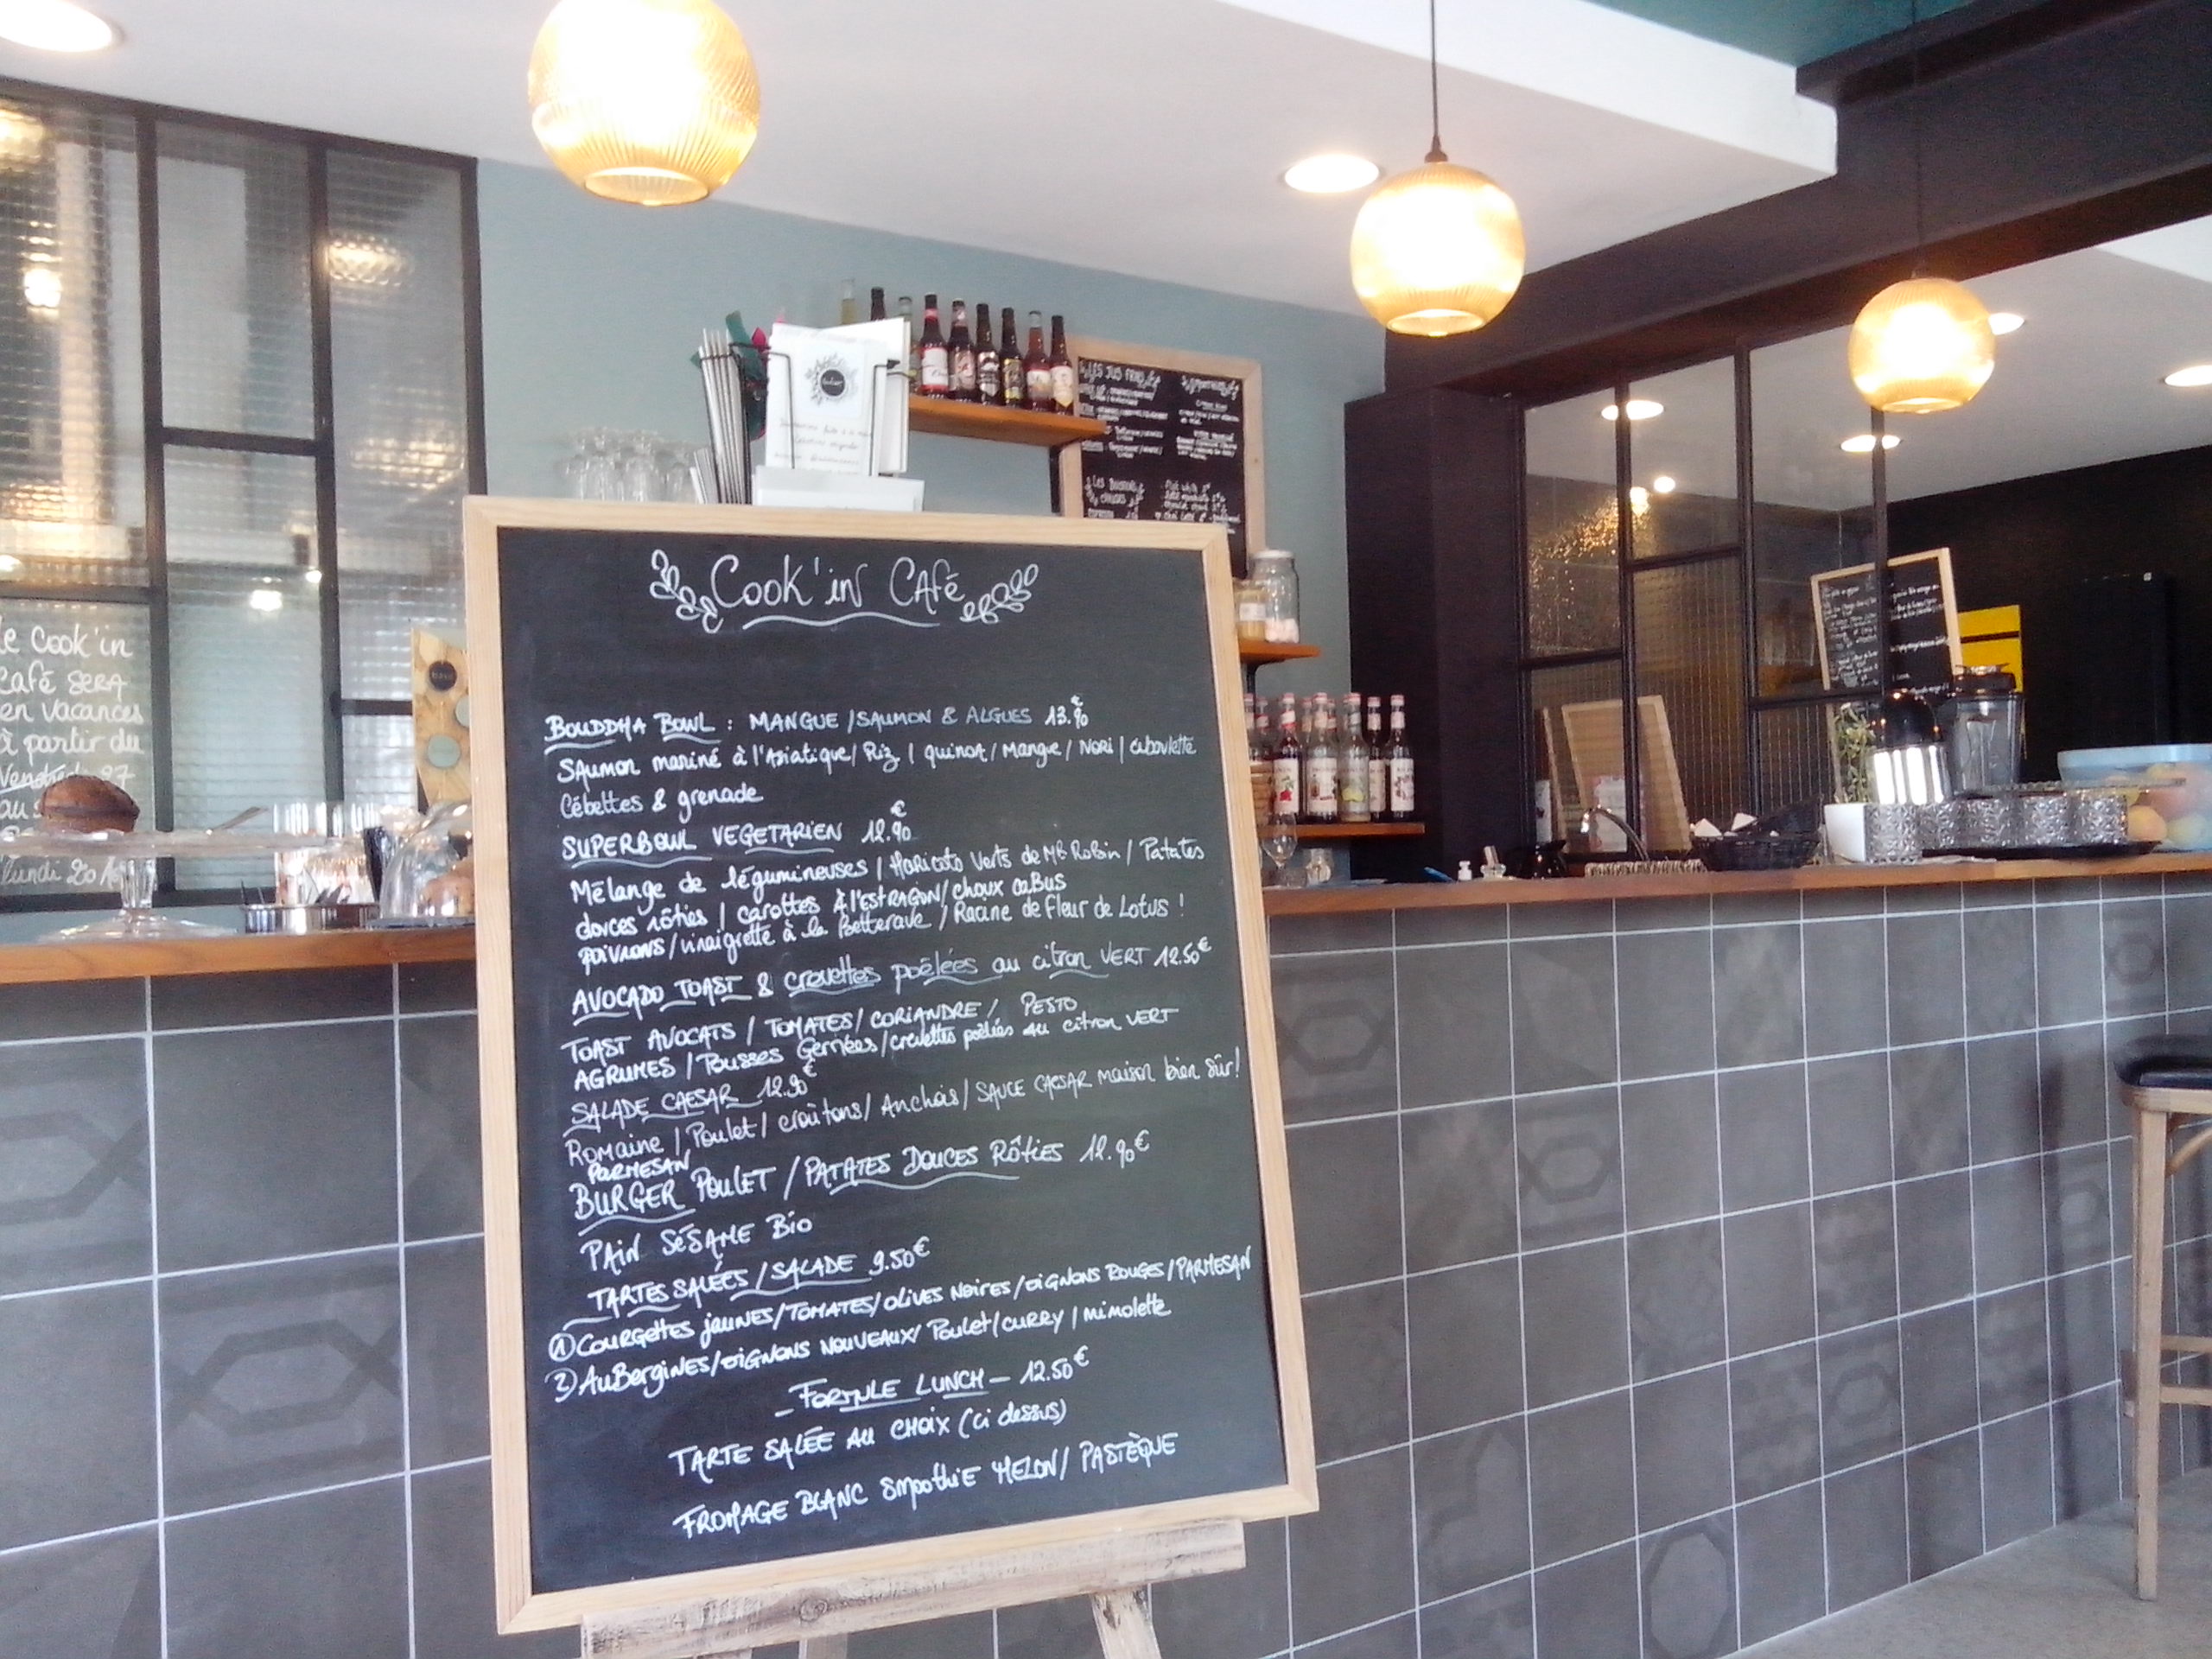 Cook'in Café
BOUDDHA BOWL : MANGUE / SAUMON & ALGUES 13.90€
SAumon mariné à l'Asiatique / Riz / quinoa / Mangue / Nori / ciboulette
Cébettes & grenade
SUPERBOWL VEGETARIEN 12.90€
Mélange de légumineuses / Haricots verts de Mr Robin / Patates
douces rôties / carottes à l'ESTRAGON / choux caBus
poivrons / vinaigrette à la Betterave / Racine de fleur de Lotus !
AVOCADO TOAST & crevettes poêlées au citron VERT 12.50€
TOAST AVOCATS / TOMATES / CORIANDRE / PESTO
AGRUMES / Pousses Germées / crevettes poêlées au citron VERT
SALADE CAESAR 12.90€
Romaine / Poulet / croûtons / Anchois / SAUCE CAESAR maison bien sûr !
PARMESAN
BURGER POULET / PATATES DOUCES RÔTIES 12.90€
PAIN SÉSAME Bio
TARTES SALÉES / SALADE 9.50€
① COURGETTES jAUNES / TOMATES / OLIVES NOIRES / OIGNONS ROUGES / PARMESAN
2) AuBergines / OIGNONS NOUVEAUX / Poulet / CURRY / mimolette
_ FORMULE LUNCH — 12.50€
TARTE SALÉE AU CHOIX (ci dessus)
FROMAGE BLANC smoothie MELON / PASTÈQUE
le Cook'in
Café SERA
en vacances
à partir du
Vendredi 27
au
lundi 20
LES JUS FRAIS